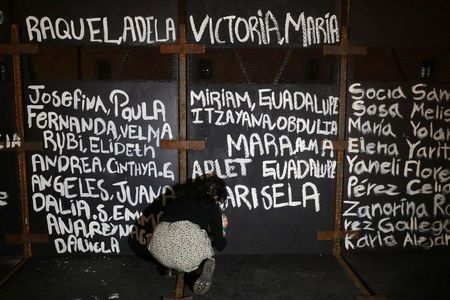 RAQUEL, ADELA
VICTORIA, MARÍA
Josefina, Paula
Fernanda, VELMA
RUBI, ELIDETH
ANDREA, CINTHYA.G
ANGELES, JUANA
DALIA, S, EM
ANA, REYN
DANIELA
MIRIAM, GUADALUPE
ITZAYANA, OBDULIA
MARA ALMA
ARLET GUADALUPE
MARISELA
Socia San
Sosa Melis
María Yolan
Elena Yarit
Yaneli Flore
Pérez Celia
Zanorina Ro
rez Gallego
Karla Alejan